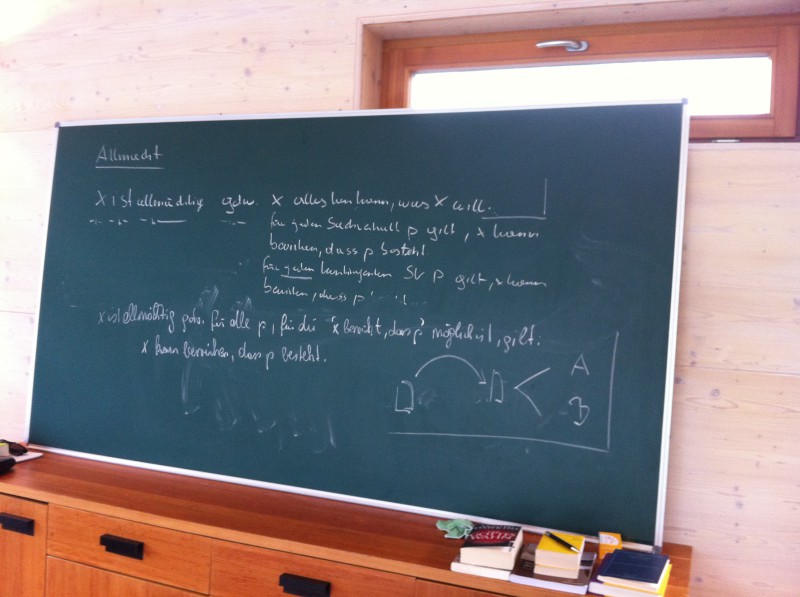 Allmacht
x ist allmächtig gdw. x alles tun kann, was x will.
für jeden Sachverhalt p gilt, x kann
bewirken, dass p besteht
für jeden kontingenten SV p gilt, x kann
bewirken, dass p
x ist allmächtig gdw. für alle p, für die 'x bewirkt, dass p' möglich ist, gilt:
x kann bewirken, dass p besteht.
A
B